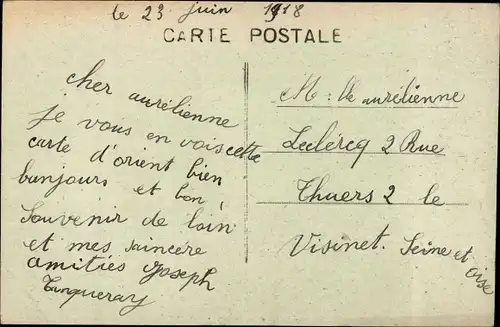 le 23 juin 1918
CARTE POSTALE
cher aurélienne
je vous en vois cette
carte d'orient bien
bonjours et bon
souvenir de loin
et mes saincère
amitiés Joseph
Tanqueray
M: lle aurélienne
Leclércq 2 Rue
Thuers 2 le
Visinet. Seine et oise